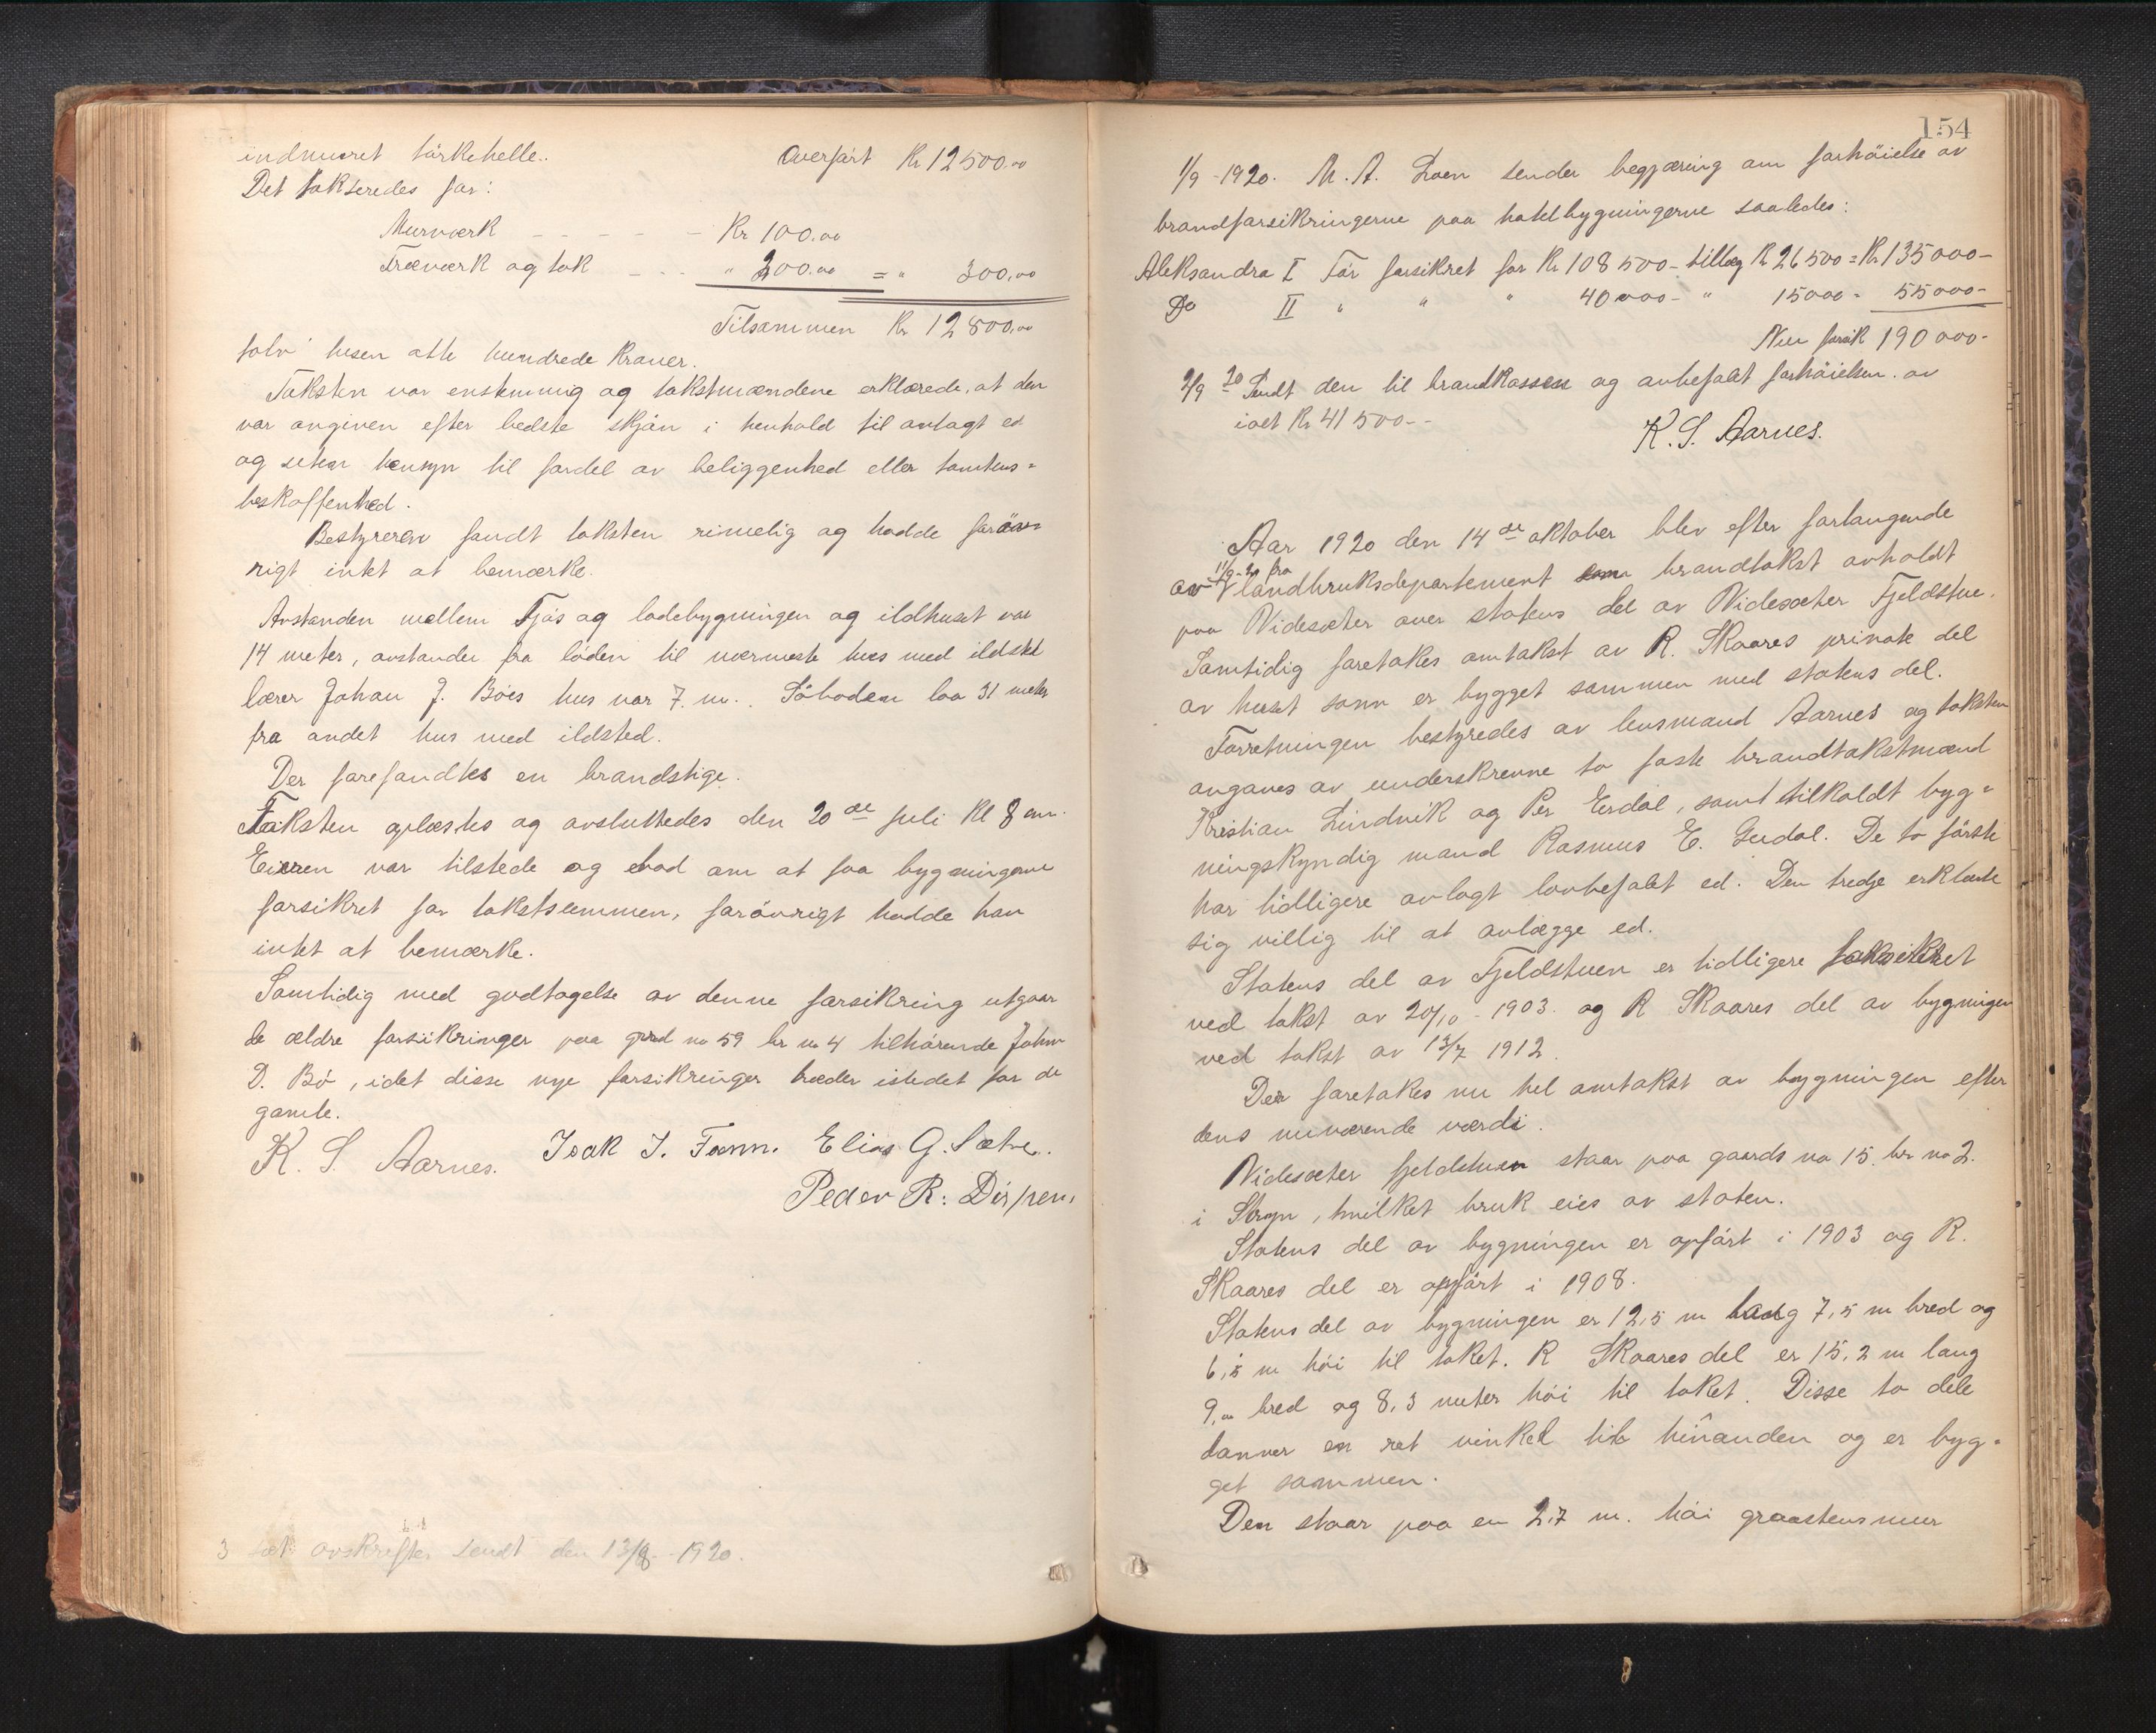 indmuret tørkehelle. Overført Kr 12500.00
Det takseredes for:
Murværk - - - - - Kr 100.00
Træværk og tak - - - " 200.00 = " 300,00
Tilsammen Kr 12800.00
tolv tusen otte hundrede Kroner.
Taksten var enstemmig og takstmændene erklærede, at den
var angiven efter bedste skjøn i henhold til avlagt ed
og uten hensyn til fordel av beliggenhed eller tomtens-
beskaffenhed.
Bestyreren fandt taksten rimelig og hadde forøv-
rigt intet at bemærke.
Avstanden mellem Fjøs og ladebygningen og ildhuset var
14 meter, avstanden fra løden til nærmeste hus med ildsted
lærer Johan J. Bøes hus var 7. m. Søboden laa 31 meter
fra andet hus med ildsted.
Der forefandtes en brandstige.
Taksten oplæstes og avsluttedes den 20de juli Kl 8 em.
Eieren var tilstede og bad om at faa bygningerne
forsikret for takstsummen, forøvrigt hadde han
intet at bemærke.
Samtidig med godtagelse av denne forsikring utgaar
de ældre forsikringer paa gaard no 59 br no 4 tilhørende Johan
D. Bø, idet disse nye forsikringer træder istedet for de
gamle.
K. S. Aarnes. Isak I. Fonn. Elias G. Sætre.
Peder R. Dispen.
3 sæt avskrifter sendt den 13/8 - 1920.
154
1/9 - 1920. M. A. Loen sender begjæring om forhøielse av
brandforsikringerne paa hotelbygningerne saaledes:
Aleksandra I Før forsikret for Kr 108500 - tillæg Kr 26500 = Kr 135000 -
Do II " " " 40000 - " 15000 = 55000 -
Nu forsik 190000 -
2/9 20 Sendt den til brandkassen og anbefalet forhøielsen av
ialt Kr 41500 - -
K. S. Aarnes.
Aar 1920 den 14de oktober blev efter forlangende
11/9-20 fra
av landbruksdepartement brandtakst avholdt
paa Videsæter over statens del av Videsæter Fjeldstue.
Samtidig foretakes omtakst av R. Skaares private del
av huset som er bygget sammen med statens del.
Forretningen bestyredes av lensmand Aarnes og taksten
avgaves av underskrevne to faste brandtakstmænd
Kristian Lindvik og Per Eirdal, samt tilkaldt byg-
ningskyndig mand Rasmus E. Gudal. De to første
har tidligere avlagt lovbefalet ed. Den tredje erklærte
sig villig til at avlægge ed.
Statens del av Fjeldstuen er tidligere forsikret
ved takst av 20/10 - 1903. og R Skaares del av bygningen
ved takst av 13/7 1912.
Der foretakes nu hel omtakst av bygningen efter
dens nuværende værdi.
Videsæter fjeldstuen staar paa gaards no 15. br no 2.
i Stryn, hvilket bruk eies av staten.
Statens del av bygningen er opført i 1903 og R.
Skaares del er opført i 1908.
Statens del av bygningen er 12,5 m lang 7,5 m bred og
6,5 m høi til taket. R Skaares del er 15,2 m lang
9,00 bred og 8,3 meter høi til taket. Disse to dele
danner en ret vinkel til hinanden og er byg-
get sammen.
Den staar paa en 2.7 m. høi graastensmur